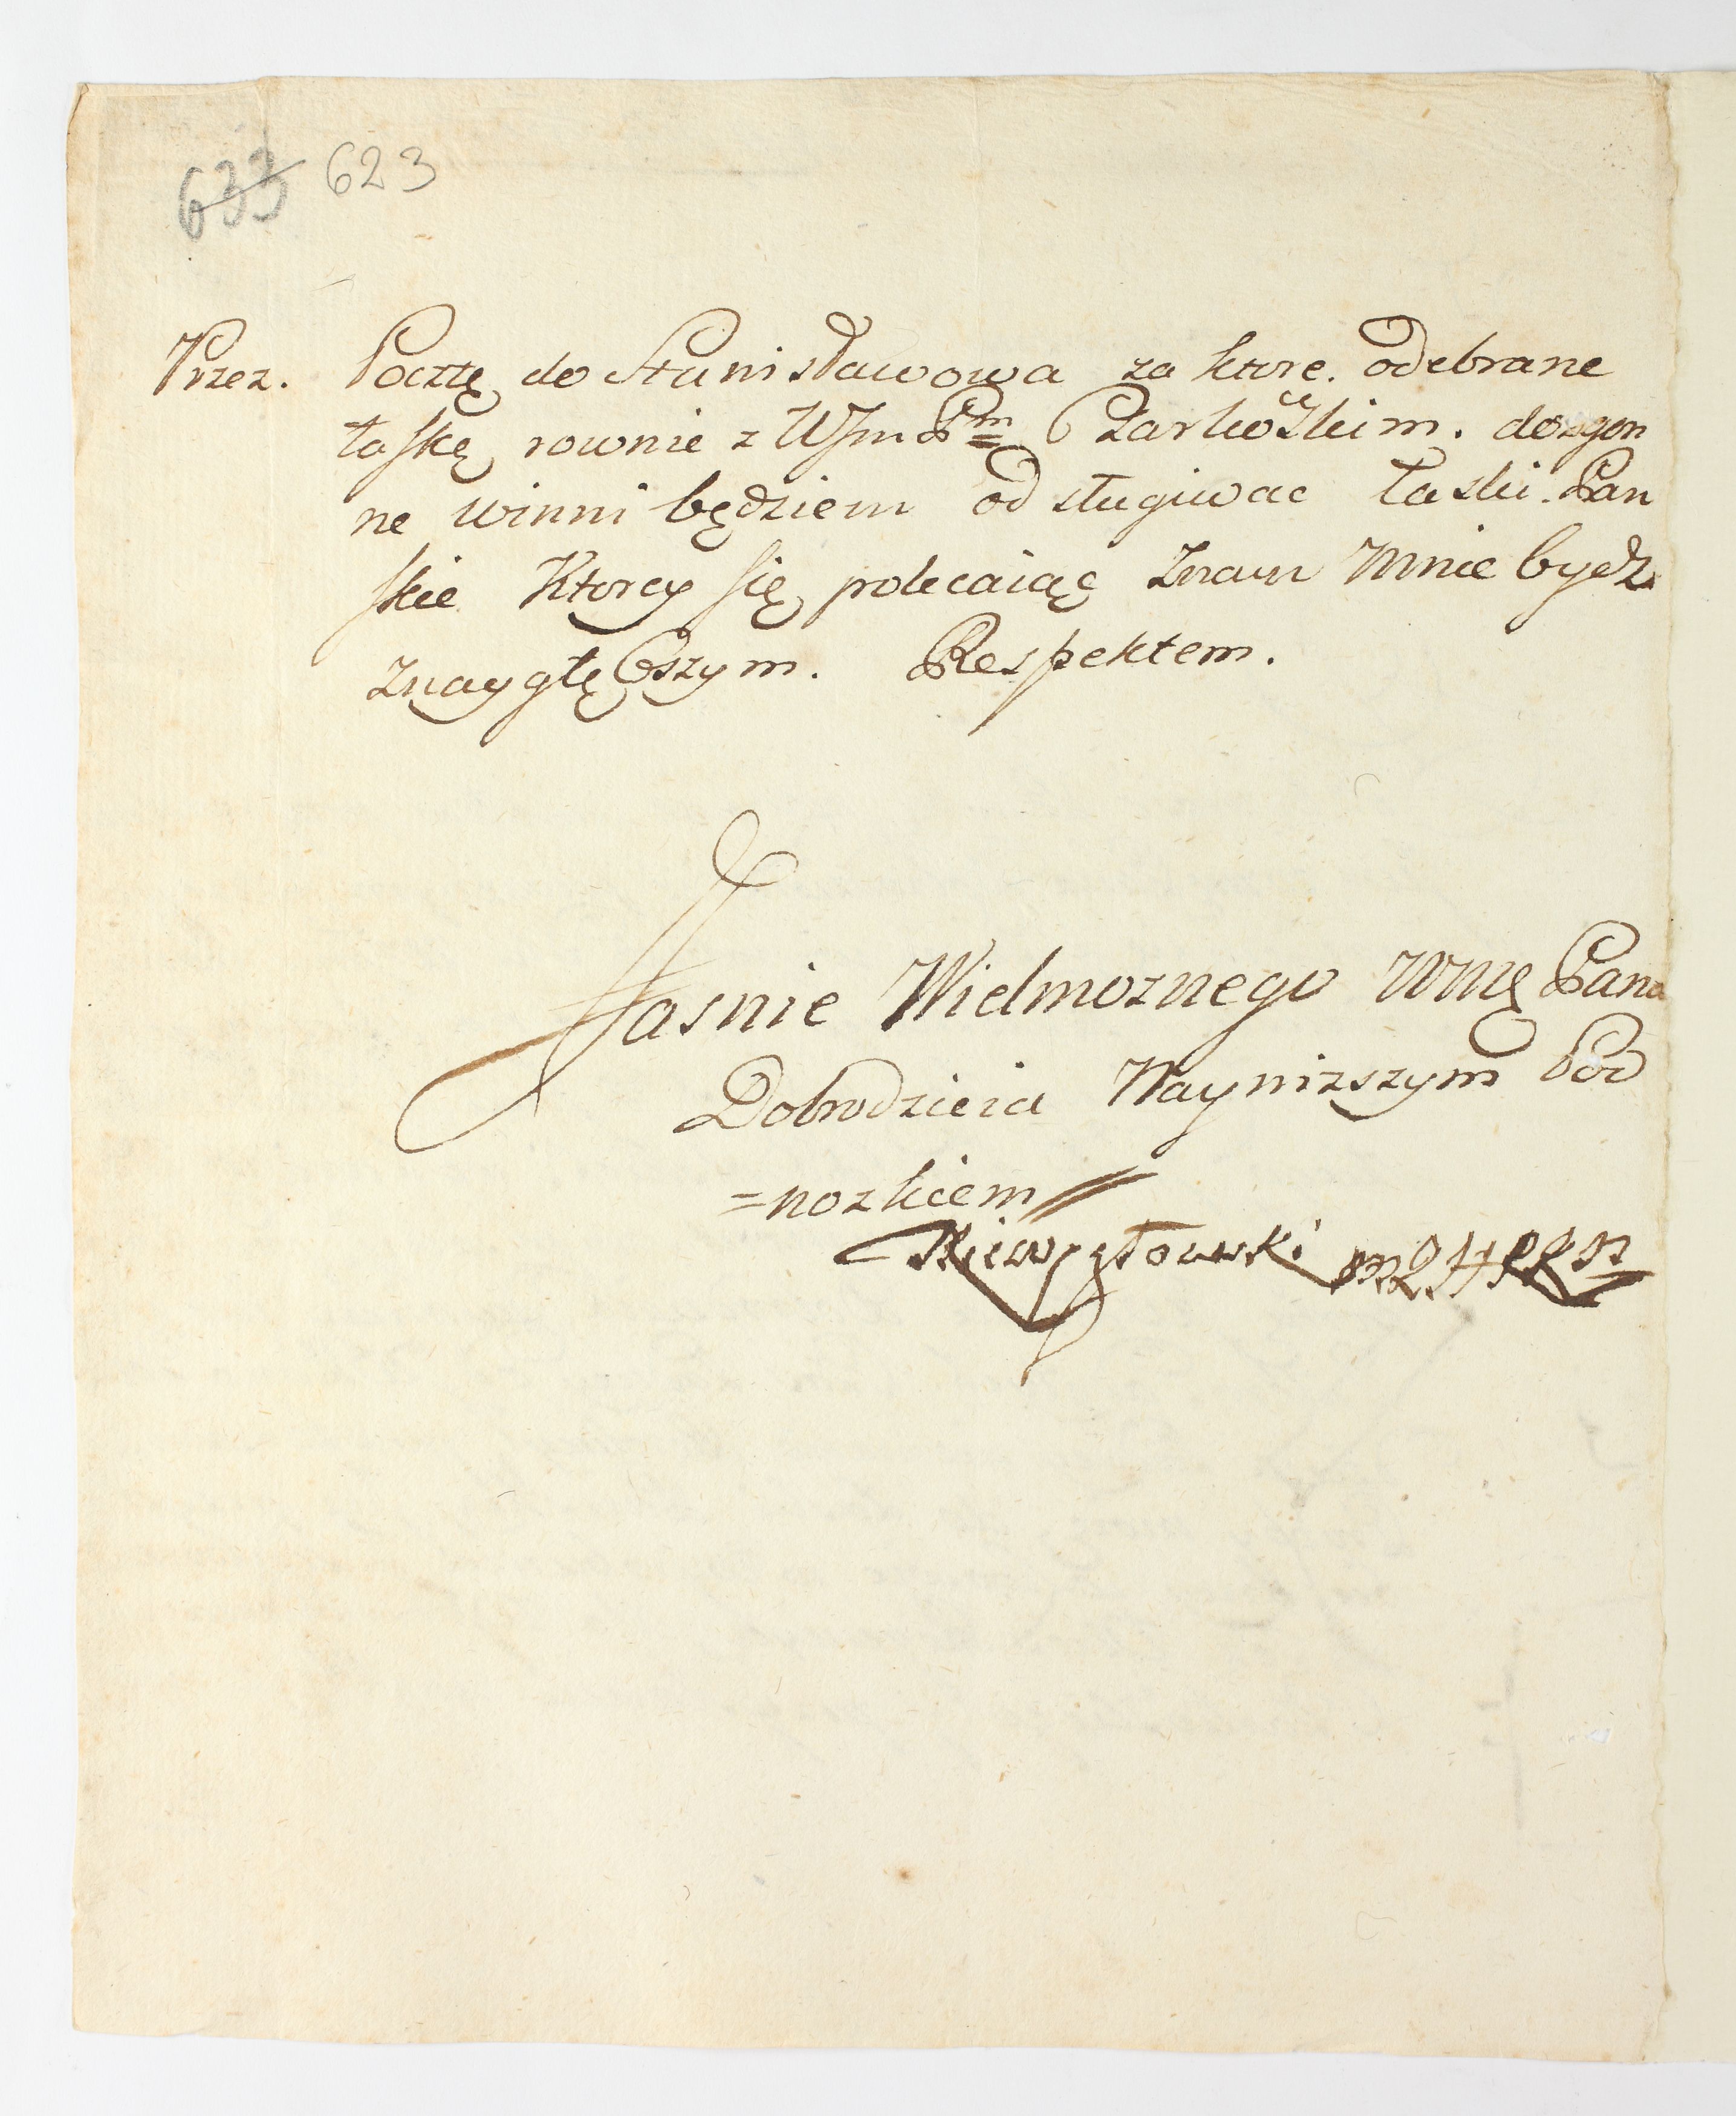 633 623
Przez. Pocztę do Stanisławowa za ktore. odebrane
łaskę rownie z WJm Pm dozgon
ne winni będziem odsługiwac łaski. Pan
skie Ktorey się polecaiąc Znam Mnie bydz
Znaygłębszym. Respektem.
Jasnie Wielmoznego WMę Pana
Dobrodzieia Naynizszym Pod
=nozkiem